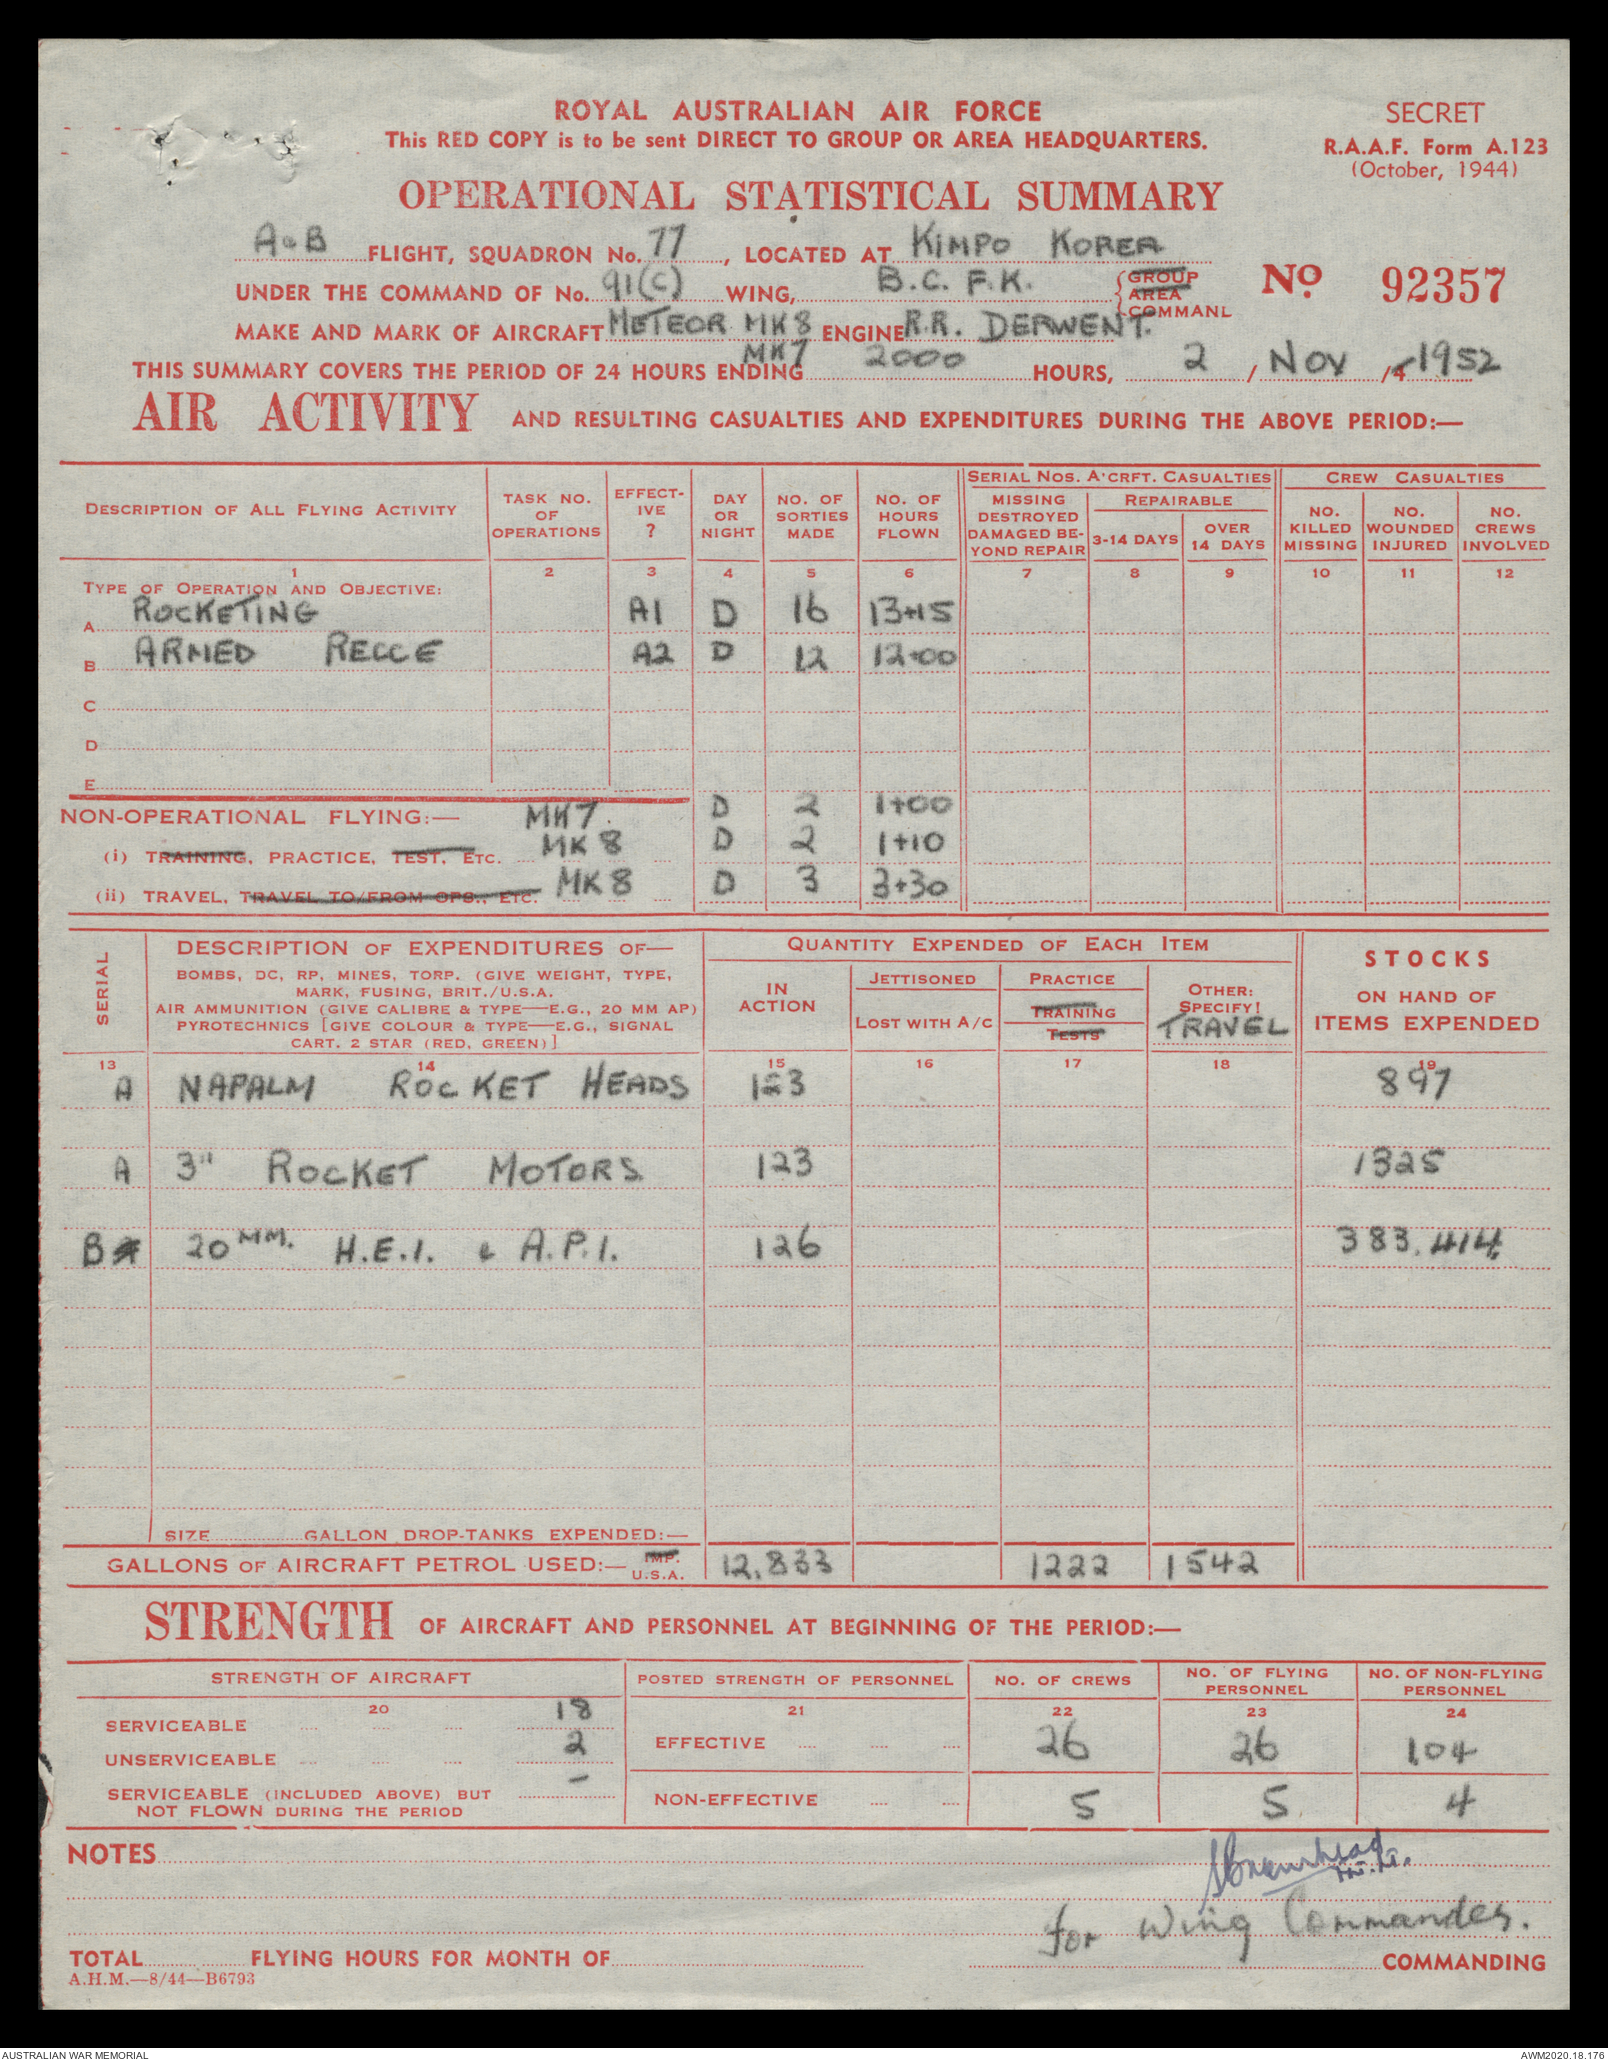 ROYAL AUSTRALIAN AIR FORCE
SECRET
This RED COPY is to be sent DIRECT TO GROUP OR AREA HEADQUARTERS.
R.A.A.F. Form A.123
(October, 1944)
OPERATIONAL STATISTICAL SUMMARY
A & B FLIGHT, SQUADRON No. 77, LOCATED AT KIMPO KOREA
UNDER THE COMMAND OF No. 91(C) WING, B.C.F.K. GROUP AREA COMMAND
No. 92357
MAKE AND MARK OF AIRCRAFT METEOR MK 8 ENGINE R.R. DERWENT.
MK 7
THIS SUMMARY COVERS THE PERIOD OF 24 HOURS ENDING 2000 HOURS, 2 / NOV /4 1952
AIR ACTIVITY AND RESULTING CASUALTIES AND EXPENDITURES DURING THE ABOVE PERIOD:—
DESCRIPTION OF ALL FLYING ACTIVITY TASK NO. OF OPERATIONS EFFECT-IVE ? DAY OR NIGHT NO. OF SORTIES MADE NO. OF HOURS FLOWN SERIAL NOS. A'CRFT. CASUALTIES CREW CASUALTIES
MISSING DESTROYED DAMAGED BE-YOND REPAIR REPAIRABLE 3-14 DAYS OVER 14 DAYS NO. KILLED MISSING NO. WOUNDED INJURED NO. CREWS INVOLVED
1 2 3 4 5 6 7 8 9 10 11 12
TYPE OF OPERATION AND OBJECTIVE:
A ROCKETING A1 D 16 13+15
B ARMED RECCE A2 D 12 12+00
C
D
E
NON-OPERATIONAL FLYING:— MK7. D 2 1+00
(i) TRAINING, PRACTICE, TEST, ETC. MK 8 D 2 1+10
(ii) TRAVEL, TRAVEL TO/FROM OPS., ETC. MK 8 D 3 3+30
SERIAL DESCRIPTION OF EXPENDITURES OF— QUANTITY EXPENDED OF EACH ITEM STOCKS ON HAND OF ITEMS EXPENDED
BOMBS, DC, RP, MINES, TORP. (GIVE WEIGHT, TYPE, MARK, FUSING, BRIT./U.S.A.
AIR AMMUNITION (GIVE CALIBRE & TYPE—E.G., 20 MM AP)
PYROTECHNICS [GIVE COLOUR & TYPE—E.G., SIGNAL CART. 2 STAR (RED, GREEN)]
IN ACTION JETTISONED LOST WITH A/C PRACTICE TRAINING TESTS OTHER: SPECIFY! TRAVEL
13 14 15 16 17 18 19
A NAPALM ROCKET HEADS 123 897
A 3" ROCKET MOTORS 123 1325
B 20 MM. H.E.I. & A.P.I. 126 383,414
SIZE GALLON DROP-TANKS EXPENDED:—
GALLONS OF AIRCRAFT PETROL USED:— IMP. U.S.A. 12,833 1222 1542
STRENGTH OF AIRCRAFT AND PERSONNEL AT BEGINNING OF THE PERIOD:—
STRENGTH OF AIRCRAFT POSTED STRENGTH OF PERSONNEL NO. OF CREWS NO. OF FLYING PERSONNEL NO. OF NON-FLYING PERSONNEL
20 21 22 23 24
SERVICEABLE 18
UNSERVICEABLE 2
EFFECTIVE 26 26 104
SERVICEABLE (INCLUDED ABOVE) BUT NOT FLOWN DURING THE PERIOD –
NON-EFFECTIVE 5 5 4
NOTES
for Wing Commander.
TOTAL FLYING HOURS FOR MONTH OF COMMANDING
A.H.M.—8/44—B6793
AUSTRALIAN WAR MEMORIAL
AWM2020.18.176